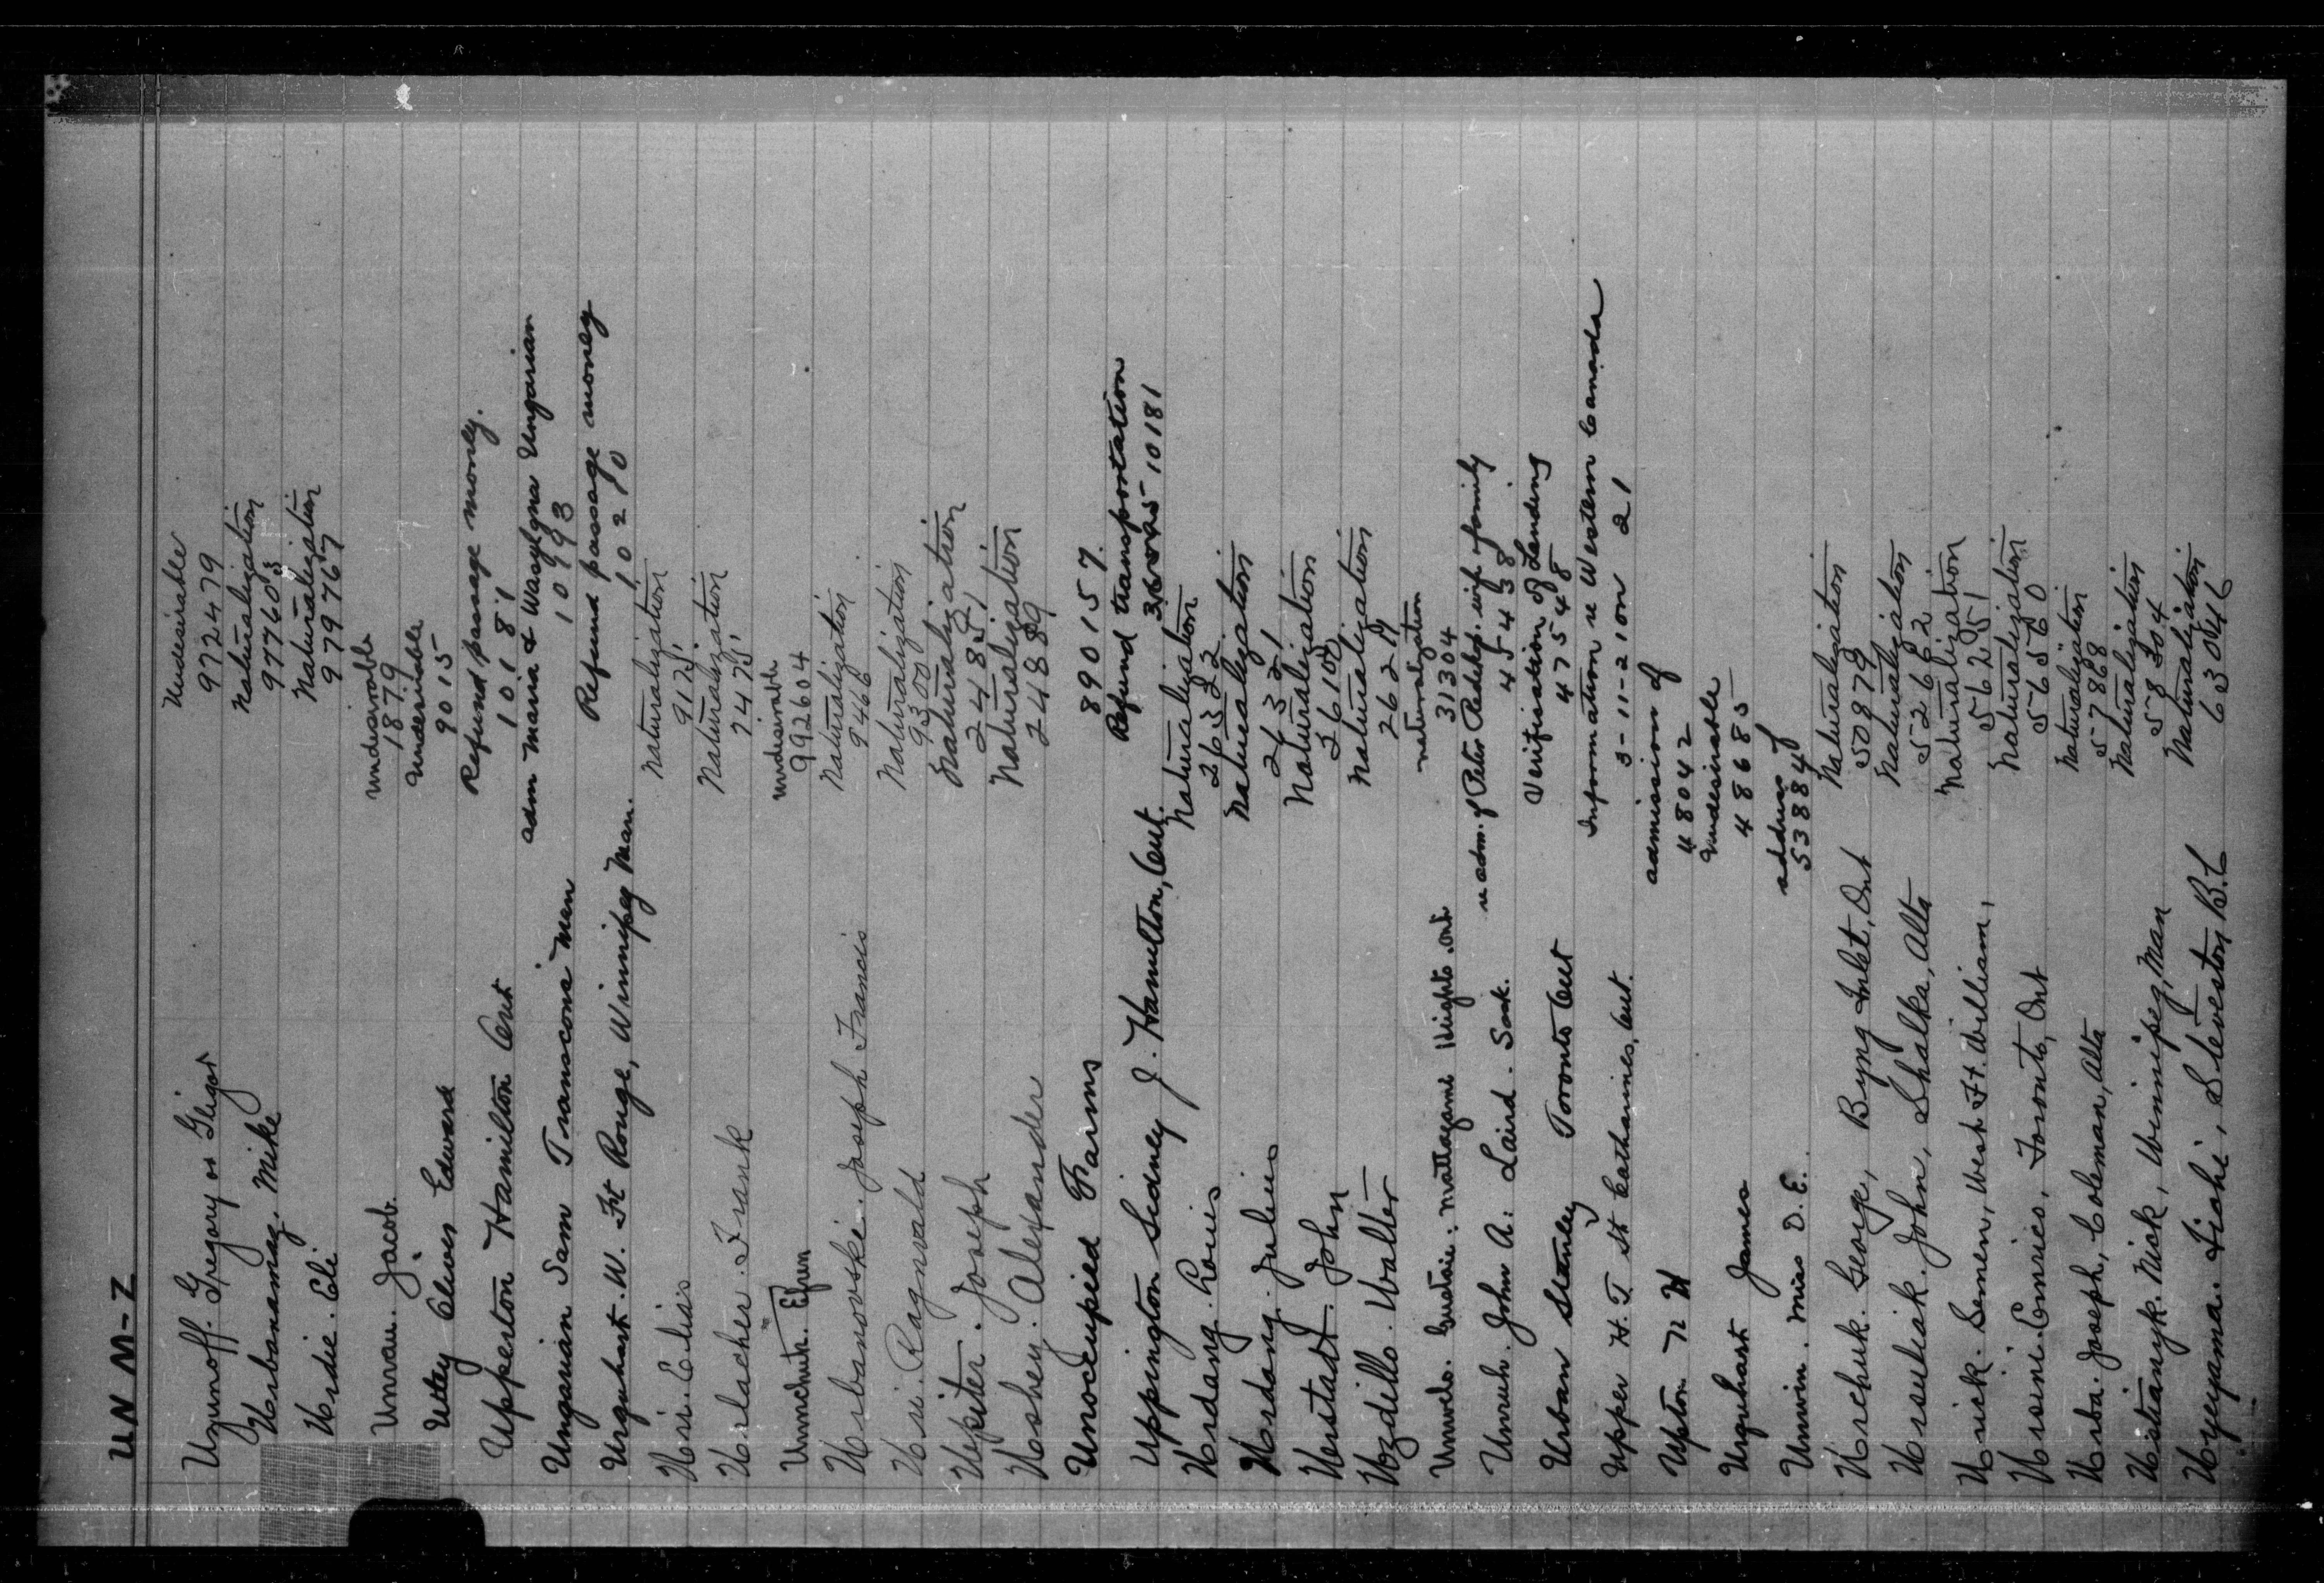 UN M-Z
Uzunoff. Gregory or Gligor Undesirable
972479
Urbanamag. Mike Naturalization
977608
Urdie. Eli Naturalization
979767
Unrau. Jacob. Undesirable
1879
Uttey Oliver Edward Undesirable
9015
Upperton Hamilton Ont Refund passage money.
10181
Ungarian Sam Transcona Man adm Maria & Wasylyna Ungarian
10993
Urquhart. W. Ft Rouge, Winnipeg Man. Refund passage money
10270
Uri. Elias Naturalization
9175
Urlacher. Frank Naturalization
7475
Unmchuk. Efren Undesirable
992604
Urbanovski. Joseph Francis Naturalization
9466
Uri. Ragnvald Naturalization
9300
Upiter. Joseph Naturalization
24851
Ushey. Alexander Naturalization
24889
Unoccupied Farms 890157.
Uppington Sidney J. Hamilton, Ont. Refund transportation
10181
Urdang. Louis Naturalization
26322
Urdang. Julius Naturalization
26321
Urstadt. John Naturalization
26102
Uzdillo. Walter Naturalization
26219
Mattagami Heights. Ont. Naturalization
31304
Unruh. John A. Laird. Sask. re adm. of Peter Redekop. wife & family
45438
Urban Stanley Toronto Ont Verification of Landing
47548
Upper H. T. St Catharines, Ont. Information re Western Canada
3-11-2100 21
Upton N W admission of
48042
Urquhart James Undesirable
48685
Unwin. Miss D. E. address of
53884
Urchuk. George, Byng Inlet, Ont Naturalization
50879
Ursuliak. John, Shalka, Alta Naturalization
52662
Urick. Semen, West Ft. William, Naturalization
56251
Ursini. Enrico, Toronto, Ont Naturalization
56560
Urba. Joseph, Coleman, Alta Naturalization
57868
Ustianyk. Nick, Winnipeg, Man Naturalization
58304
Uyeyama. Fiohi, Steveston, B.C Naturalization
63046